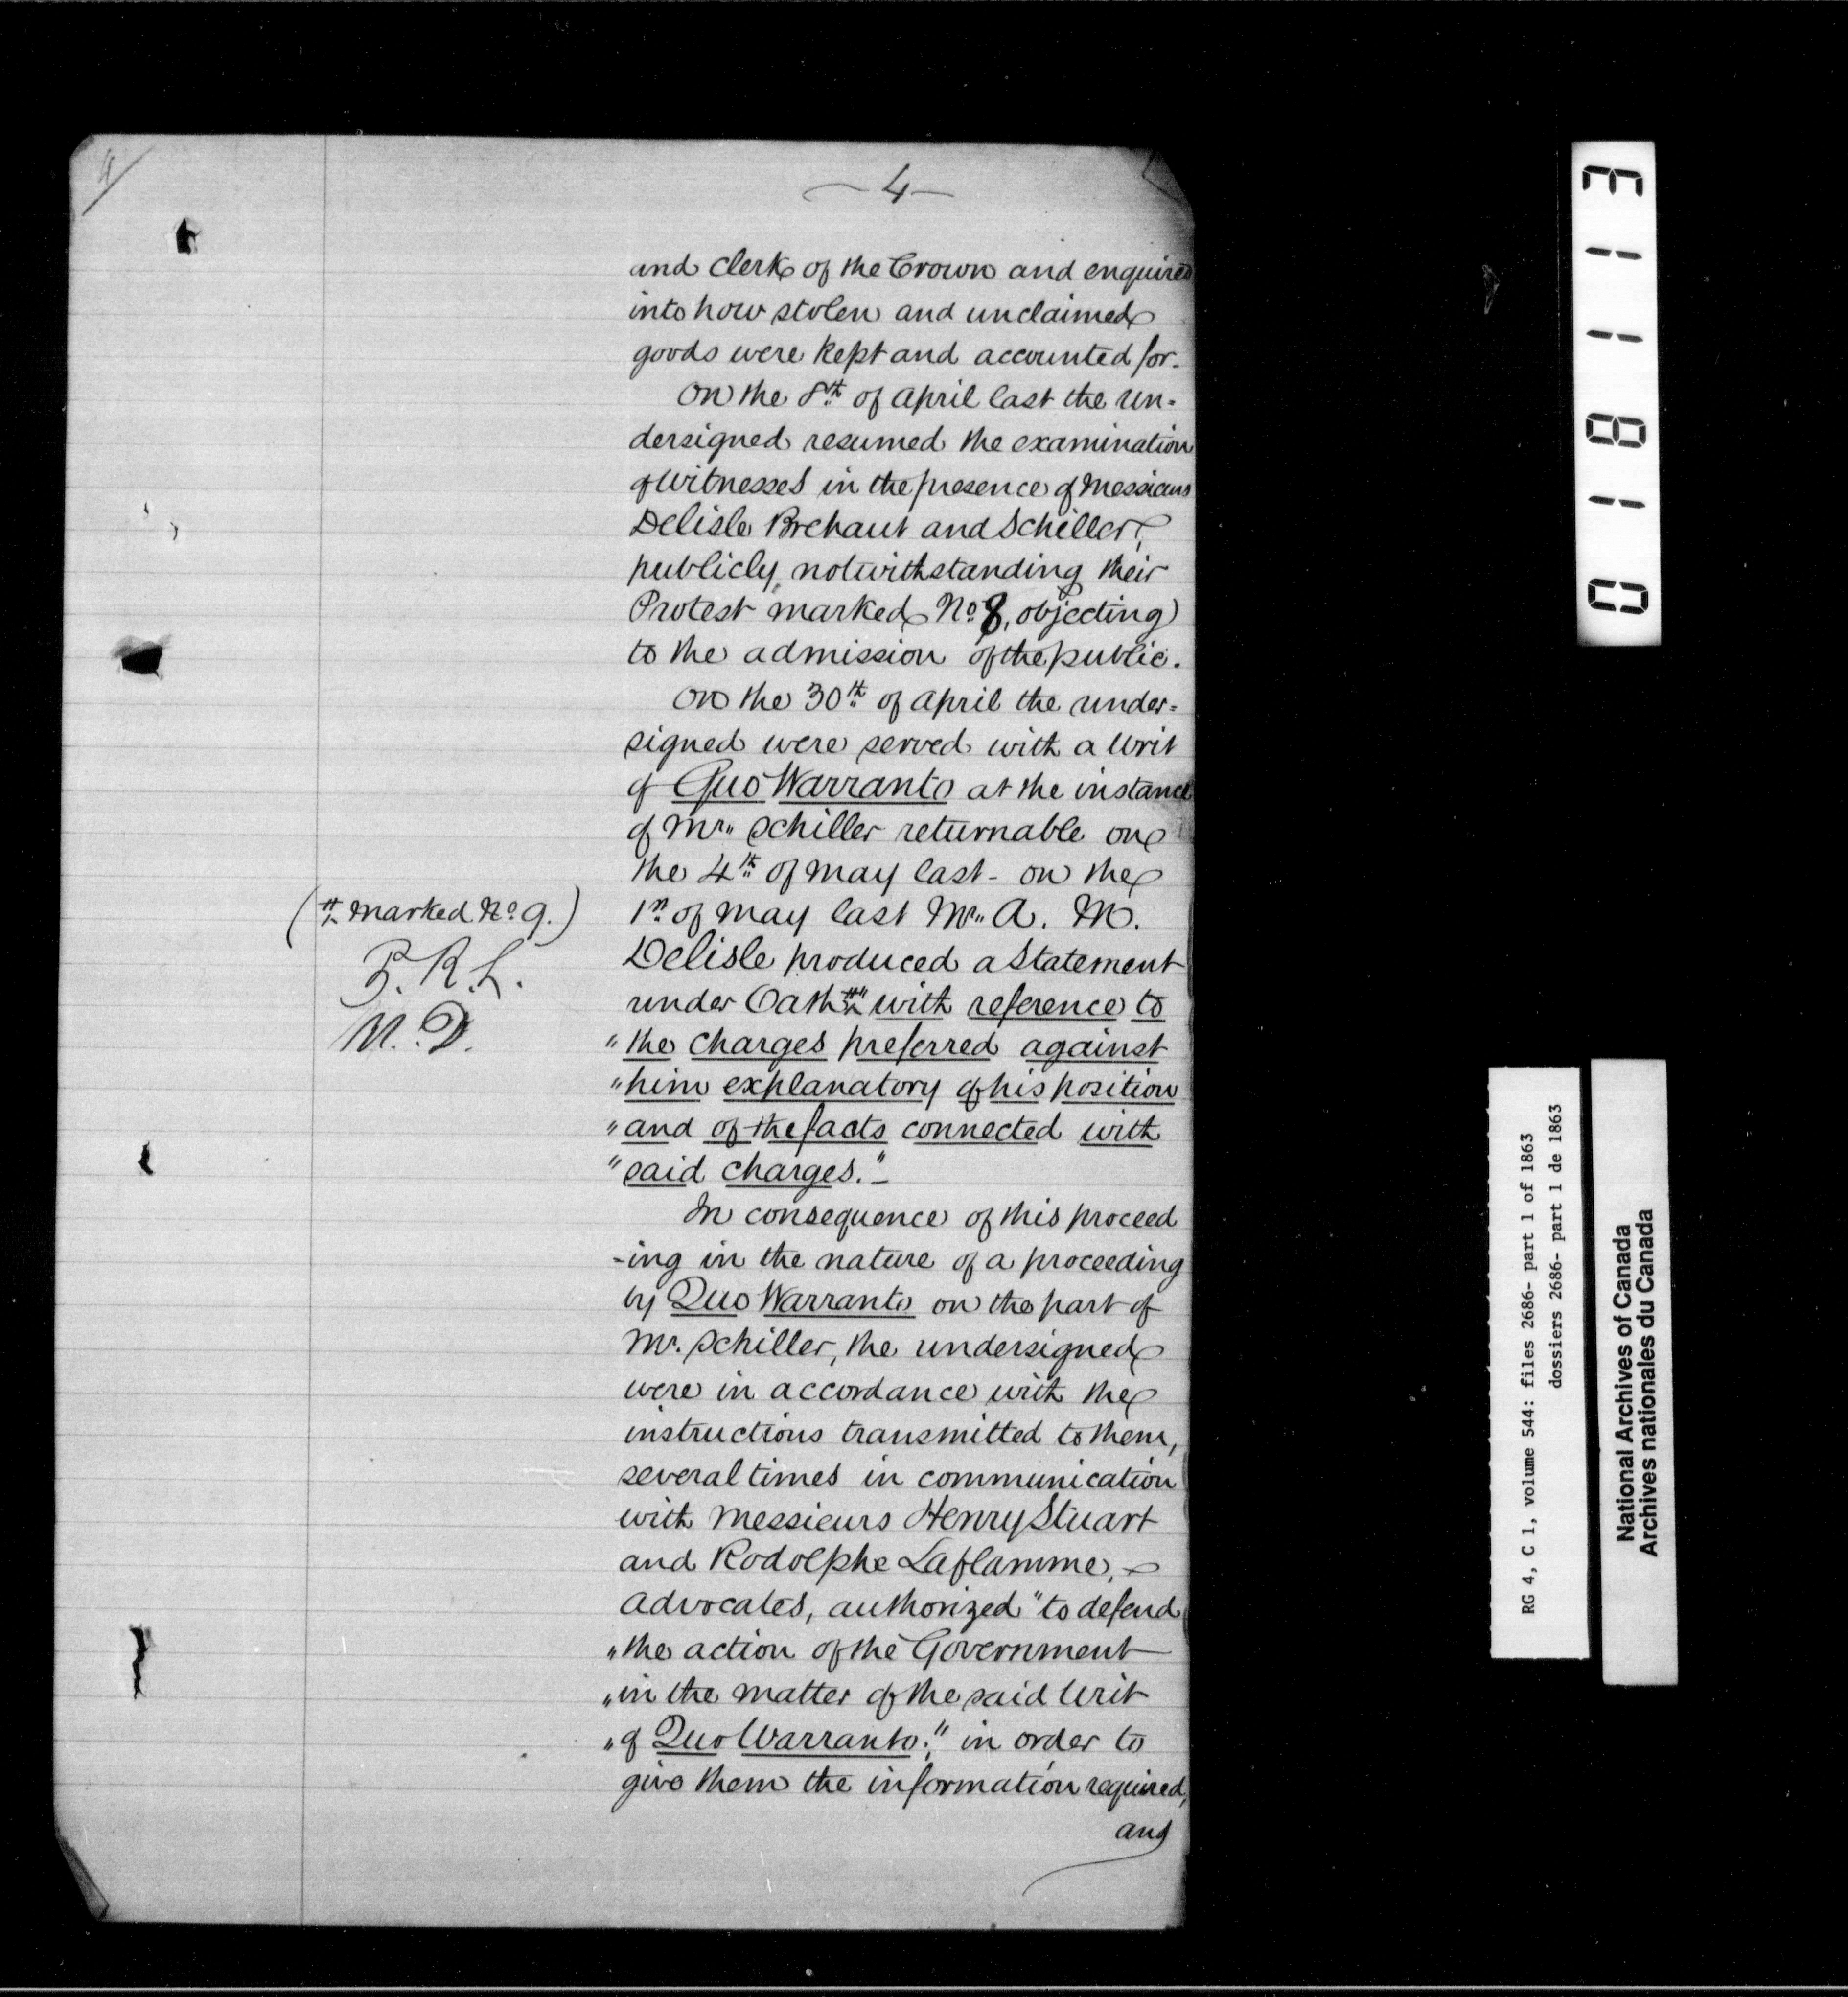 4
— 4 —
and Clerk of the Crown and enquired
into how stolen and unclaimed
goods were kept and accounted for.
On the 8th of April last the un-
dersigned resumed the examination
of Witnesses in the presence of Messieurs
Delisle Brehaut and Schiller,
publicly, notwithstanding their
Protest marked No. 8, objecting
to the admission of the public.
On the 30th of April the under-
signed were served with a Writ
of Quo Warranto at the instance
of Mr. Schiller returnable on
the 4th of May last - on the
1st of May last Mr. A. M.
Delisle produced a Statement
under Oath # "with reference to
"the charges preferred against
"him explanatory of his position
"and of the facts connected with
"said charges." -
In consequence of this proceed
-ing in the nature of a proceeding
by Quo Warranto on the part of
Mr. Schiller, the undersigned
were in accordance with the
instructions transmitted to them,
several times in communication
with Messieurs Henry Stuart
and Rodolphe Laflamme,
Advocates, authorized "to defend
"the action of the Government
"in the matter of the said Writ
"of Quo Warranto." in order to
give them the information required,
and
(# marked No. 9.)
P. R. L.
M. D.
018113
RG 4, C 1, volume 544: files 2686- part 1 of 1863
dossiers 2686- part 1 de 1863
National Archives of Canada
Archives nationales du Canada